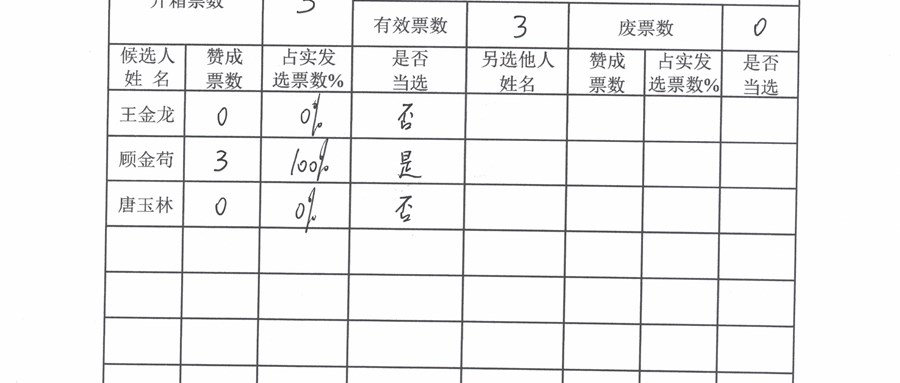 开箱票数 3
有效票数 3 废票数 0
候选人 赞成 占实发 是否 另选他人 赞成 占实发 是否
姓 名 票数 选票数% 当选 姓名 票数 选票数% 当选
王金龙 0 0% 否
顾金苟 3 100% 是
唐玉林 0 0% 否